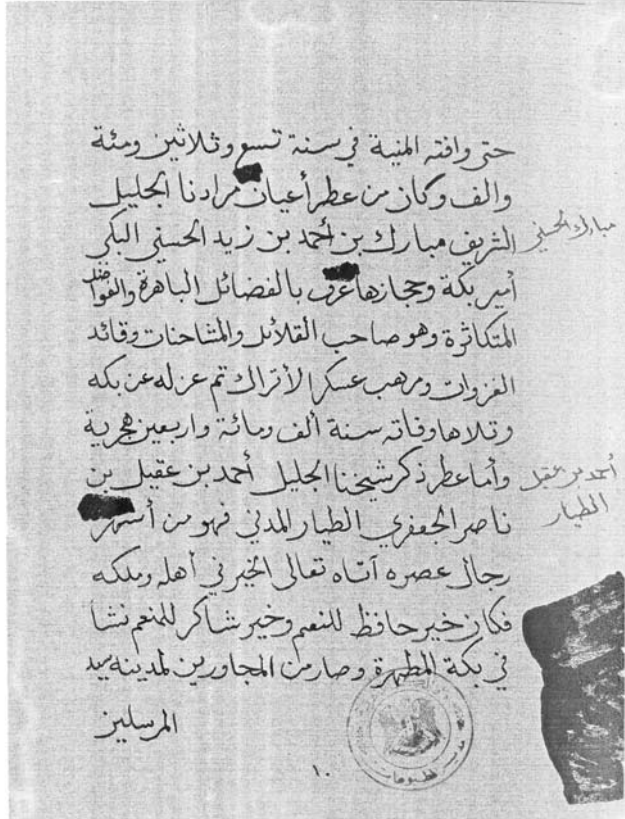 حتى وافته المنية في سنة تسع وثلاثين ومئة
والف وكان من عطر أعيان مرادنا الجليل
الشريف مبارك بن أحمد بن زيد الحسني البكي
مبارك الحسني
أمير بكة وحجازها عرف بالفضائل الباهرة والفواضل
المتكاثرة وهو صاحب القلائل والمشاحنات وقائد
الغزوات ومرهب عسكر الأتراك تم عزله عن بكه
وتلاها وفاته سنة ألف ومائة واربعين هجرية
وأما عطر ذكر شيخنا الجليل أحمد بن عقيل بن
أحمد بن عقيل
ناصر الجعفري الطيار المدني فهو من أشهر
الطيار
رجال عصره آتاه تعالى الخير في أهله وملكه
فكان خير حافظ للنعم وخير شاكر للمنعم نشا
في بكة المطهرة وصار من المجاورين لمدينه سيد
المرسلين
١٠